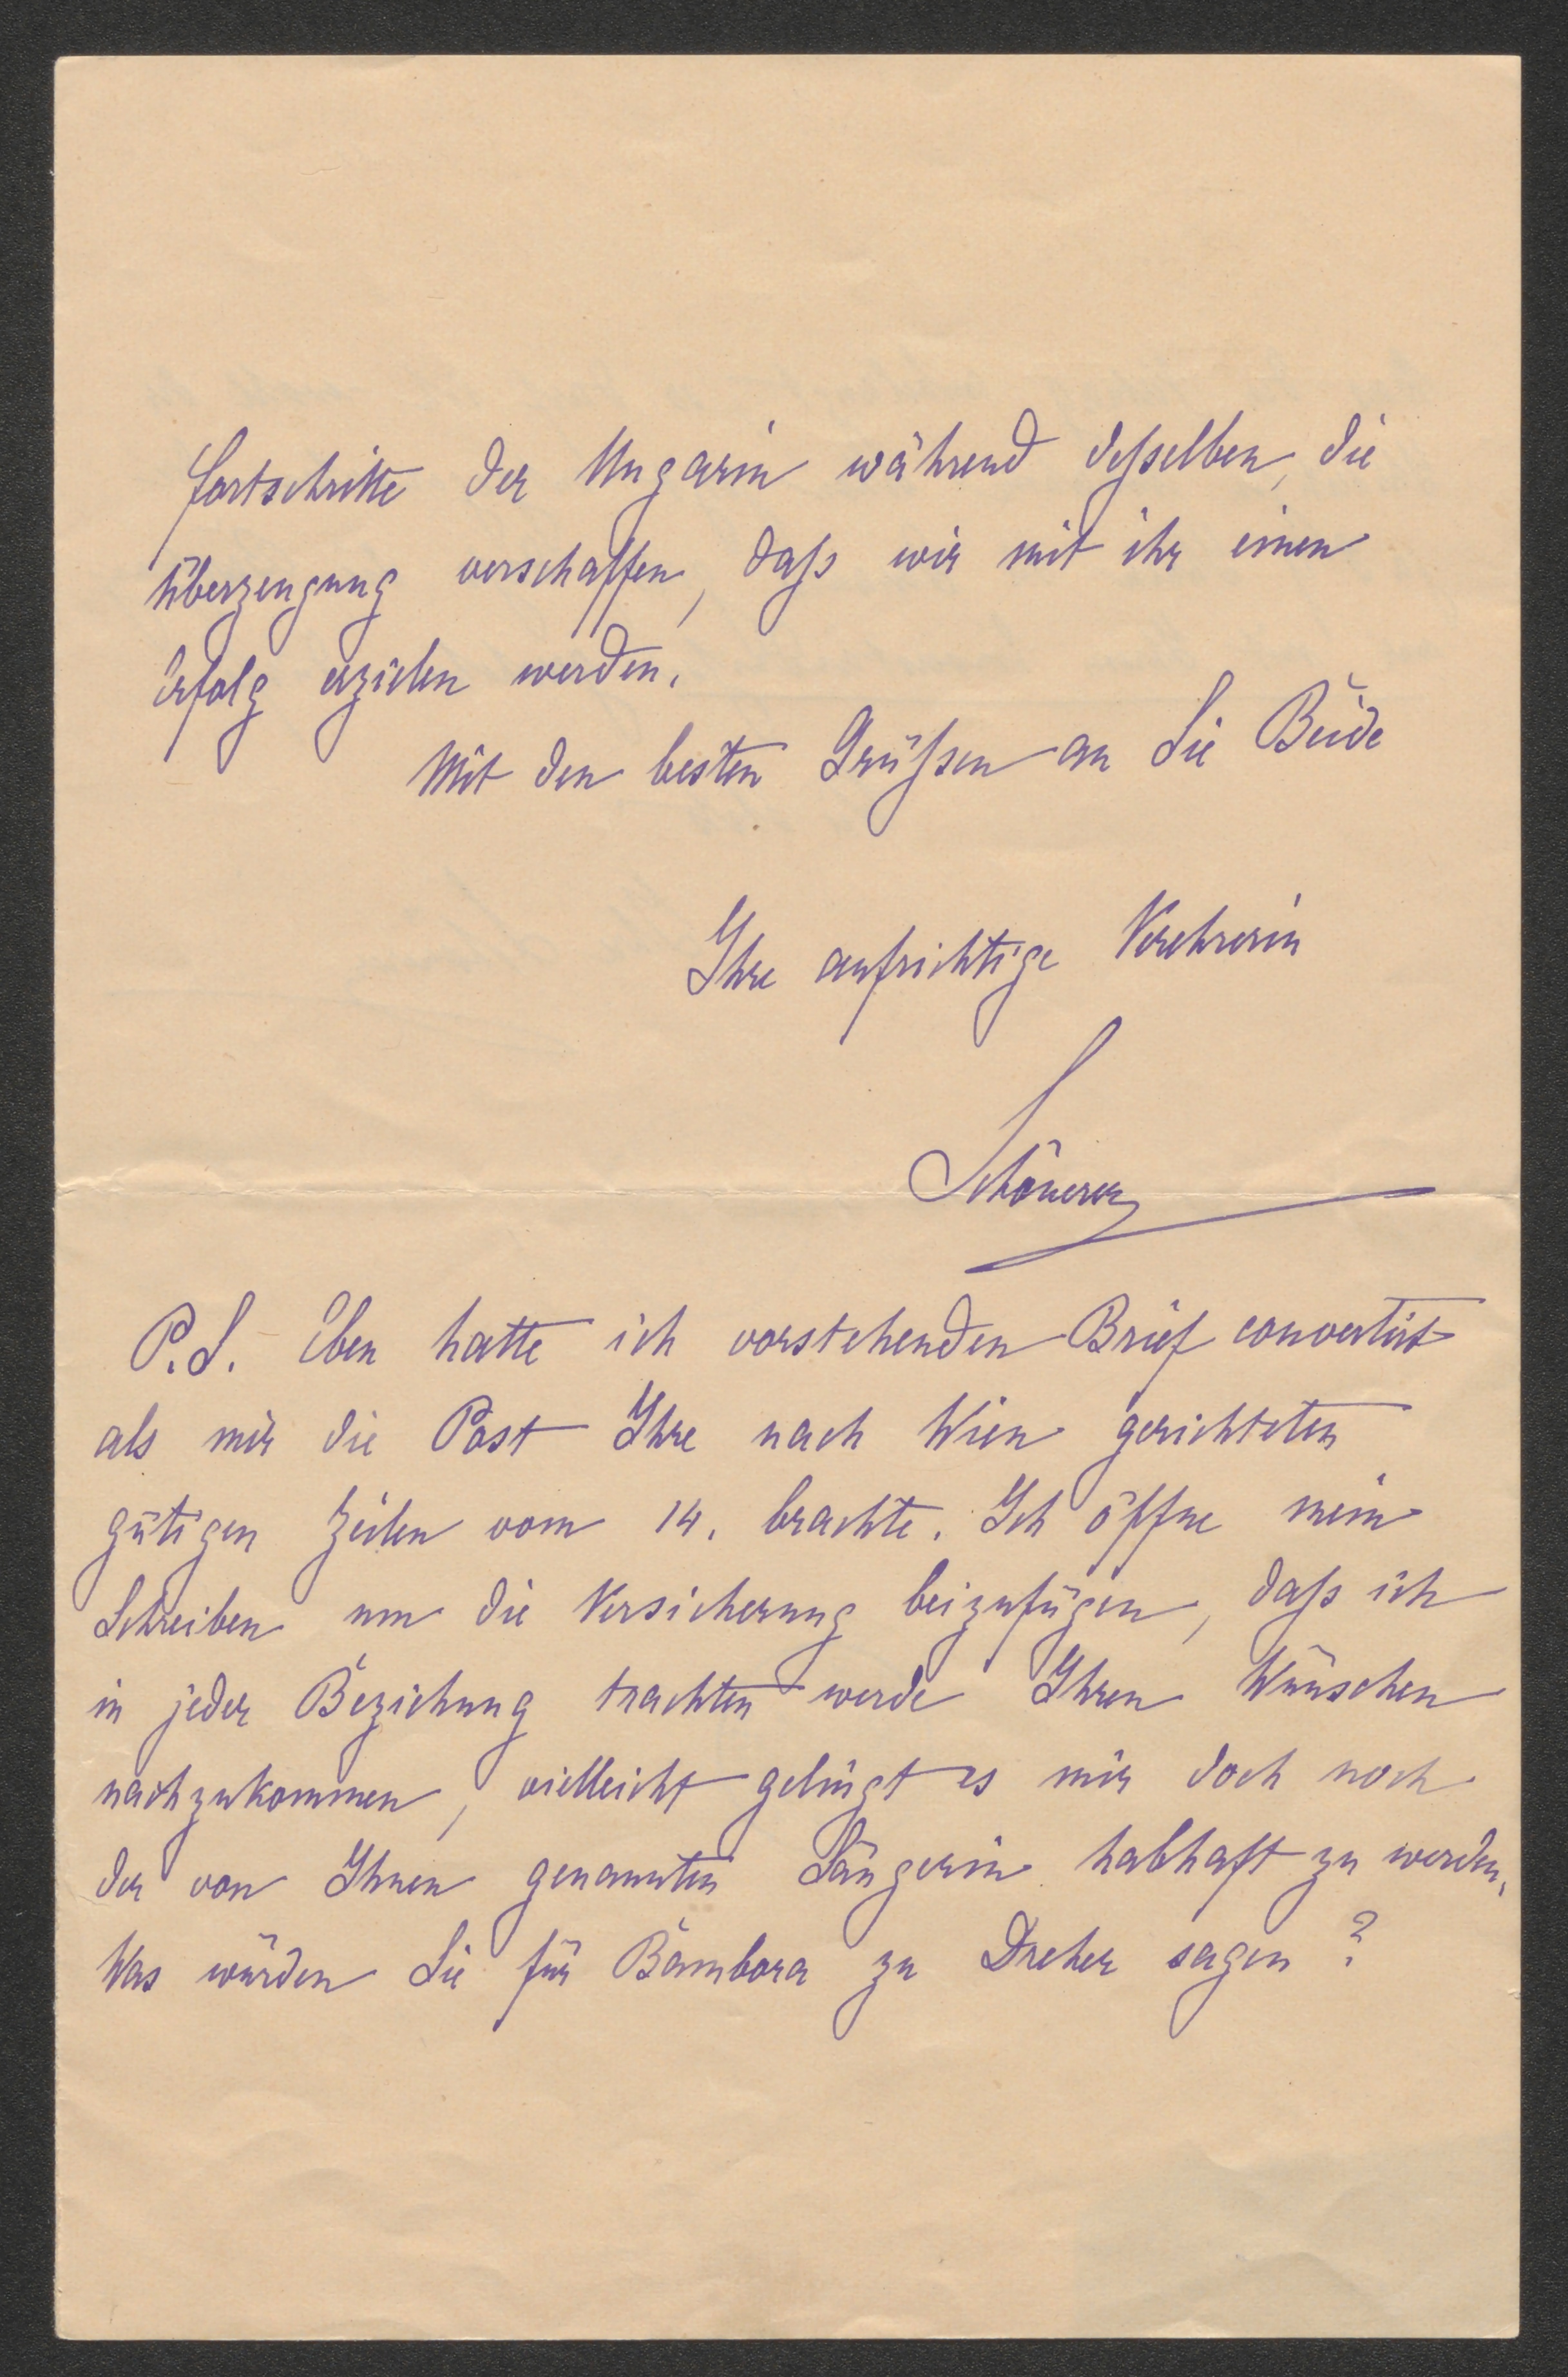 Fortschritte der Ungarin während deßselben, die
Überzeugung verschaffen, daß wir mit ihr einen
Erfolg erzielen werden.
Mit den besten Grüßsen an Sie Beide
Ihre aufrichtige Verehrerin
Schönerer
P.S. Eben hatte ich vorstehenden Brief convertirt
als mir die Post Ihre nach Wien gerichteten
gütigen Zeilen vom 14. brachte. Ich öffne mein
Schreiben um die Versicherung beizufügen, daß ich
in jeder Beziehung trachten werde Ihren Wünschen
nachzukommen, vielleicht gelingt es mir doch noch
der von Ihnen genannten Sängerin habhaft zu werden.
Was würden Sie für Bambora zu Dreher sagen?